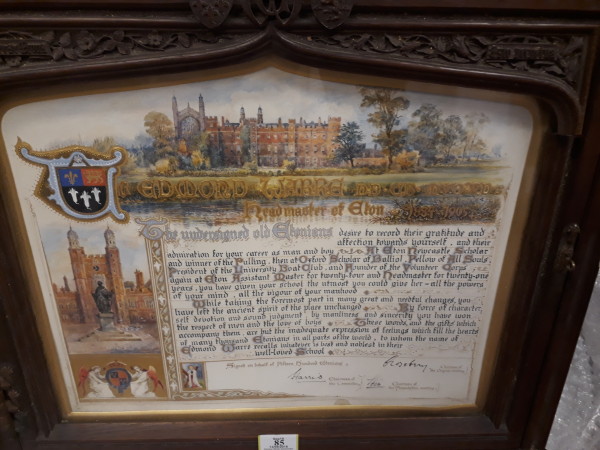 EDMOND WARRE
Headmaster of Eton
The undersigned old Etonians desire to record their gratitude and
affection towards yourself, and their
admiration for your career as man and boy At Eton Newcastle Scholar
and winner of the Pulling, then at Oxford Scholar of Balliol, Fellow of All Souls,
President of the University Boat Club, and Founder of the Volunteer Corps
again at Eton Assistant Master for twenty-four and Headmaster for twenty-one
years, you have given your school the utmost you could give her - all the powers
of your mind, all the vigour of your manhood.
While taking the foremost part in many great and needful changes, you
have left the ancient spirit of the place unchanged. By force of character,
self devotion and sound judgment, by manliness and sincerity you have won
the respect of men and the love of boys. These words, and the gift which
accompany them, are but the inadequate expression of feelings which fill the hearts
of many thousand Etonians in all parts of the world, to whom the name of
Edmond Warre recalls whatever is best and noblest in their
well-loved School.
Signed on behalf of Etonians
Chairman of
the Committee
85